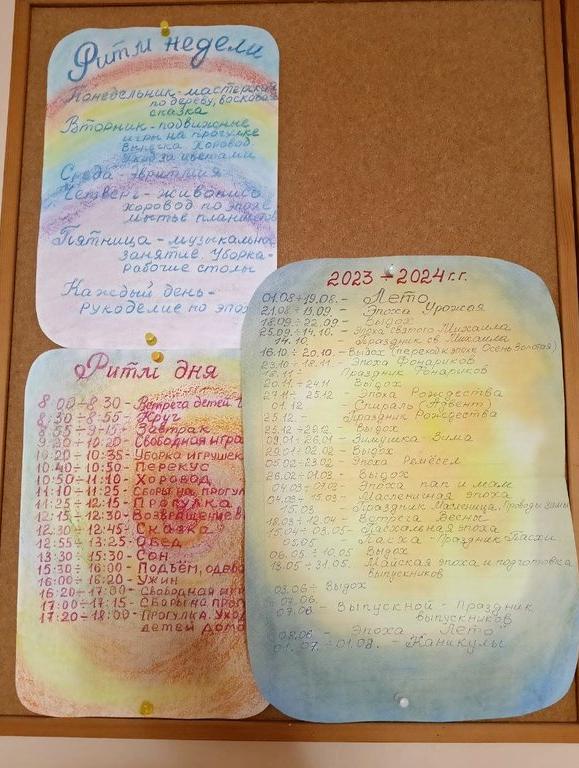 Ритм недели
Понедельник - мастерская
по дереву, восковая
сказка
Вторник - подвижные
игры на прогулке
Выпечка Хоровод
Уход за цветами
Среда - эвритмия
Четверг - живопись
хоровод по эпохе
мытьё планшетов
Пятница - музыкальное
занятие. Уборка -
рабочие столы
Каждый день -
Рукоделие по эпо
Ритм дня
8:00 ÷ 8:30 - Встреча детей
8:30 ÷ 8:55 - Круг
8:55 ÷ Завтрак
9:20 ÷ 10:20 - Свободная игра
10:20 ÷ 10:35 - Уборка игрушек
10:40 ÷ 10:50 - Перекус
10:50 ÷ 11:10 - Хоровод
11:10 ÷ 11:25 - Сборы на прогул
11:25 ÷ 12:15 - Прогулка
12:15 ÷ 12:30 - Возвращение в
12:30 ÷ 12:45 - Сказка
12:55 ÷ 13:25 - Обед
13:30 ÷ 15:30 - Сон
15:30 ÷ 16:00 - Подъём, одева
16:00 ÷ 16:20 - Ужин
16:20 ÷ 17:00 - Свободная
17:00 ÷ 17:15 - Сборы на прог
17:20 ÷ 18:00 - Прогулка. Уход
детей домо
2023 - 2024 г.г.
01.08 ÷ 19.08. - Лето
21.08 ÷ 15.09. - Эпоха Урожая
18.09 ÷ 22.09 - Выдох
25.09 ÷ 14.10. - Эпоха Святого Михаила
14.10. - Праздник св. Михаила
16.10 ÷ 20.10. - Выдох (переход к эпохе Осень Золотая)
23.10 ÷ 18.11 - Эпоха Фонариков
Праздник Фонариков
20.11 ÷ 24.11 Выдох
27.11 - 25.12 - Эпоха Рождества
01.12 Спираль (Адвент)
25.12 - Праздник Рождества
25.12 - 29.12 Выдох
09.01 ÷ 26.01 - Зимушка Зима
29.01 ÷ 02.02 - Выдох
05.02 - 23.02 - Эпоха Ремёсел
26.02 ÷ 01.03 - Выдох
04.03 - Эпоха пап и мам
04.03 ÷ 15.03 - Масленичная эпоха
15.03 - Праздник Масленица, Проводы Зимы
18.03 ÷ 12.04 - Встреча Весны
15.04 ÷ 03.05 - Пасхальная эпоха
05.05 - Пасха - Праздник Пасхи
06.05 ÷ 10.05 Выдох
13.05 ÷ 31.05. - Майская эпоха и подготовка
выпускников
03.06 ÷ Выдох
07.06.
07.06. - Выпускной - Праздник
выпускников
08.06 - Эпоха "Лето"
01.07. ÷ 01.08. - Каникулы